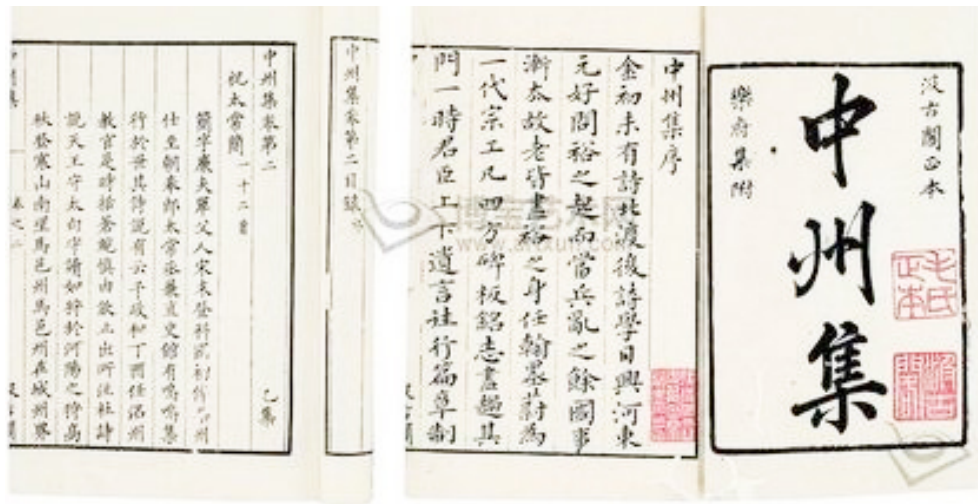 汲古閣正本
中州集
樂府集附
毛氏正本
汲古閣
中州集序
金初未有詩北渡後詩學日興河東
元好問裕之起而當兵亂之餘國事
漸去故老皆盡裕之身任翰墨蔚為
一代宗工凡四方碑板銘志盡趨其
門一時君臣上下遺言往行篇章制
中州集卷第二目錄
中州集卷第二
乙集
祝太常簡 一十二首
簡字廉夫單父人宋末登科
仕至朝奉郎太常丞兼直史館有嗚嗚集
行於世其詩說有云予政和丁酉任洺州
教官是時括蒼鮑慎由欽止出所注杜詩
說天王守太白字讀如狩於河陽之狩高
秋登寒山南望馬邑州馬邑州在城州界
卷之二